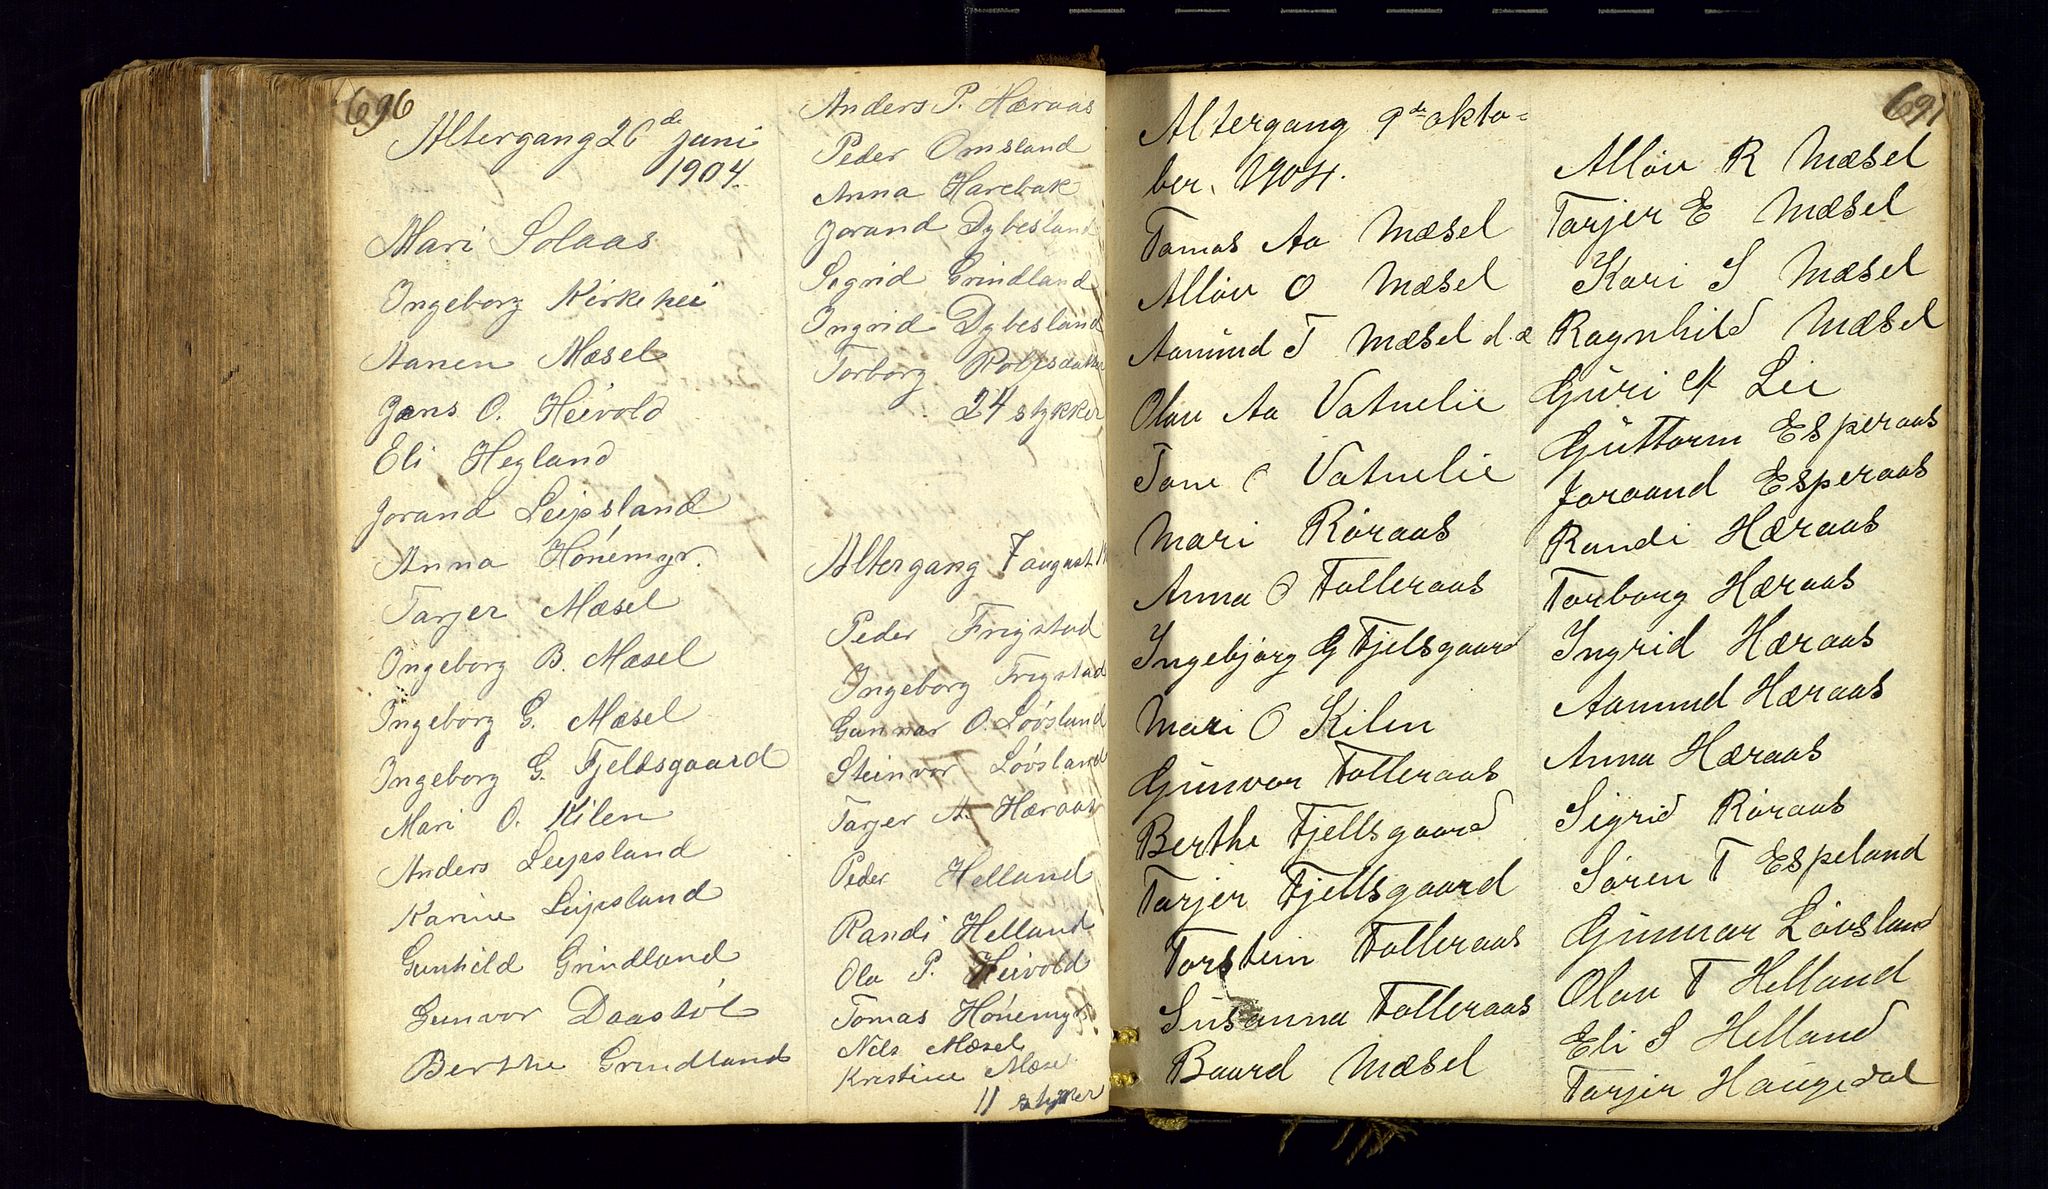 696
Altergang 26 de juni
1904.
Mari Solaas
Ingeborg Kirkehei
Aanen Mæsel
Jens O. Heivold
Eli Hegland
Jorand Leipsland
Anna Hónemyr.
Tarjer Mæsel
Ongeborg B. Mæsel
Ingeborg G. Mæsel
Ingeborg G. Fjeldsgaard
Mari O. Kilen
Anders Leipsland
Karine Leipsland
Gunhild Grindland
Gunvor Daastól
Berthe Grindland
Anders P. Hæraas
Peder Omsland
Anna Harebak
Jorand Dybesland
Sigrid Grindland
Ingrid Dybesland
Torborg
24 stykker
Altergang 7 august
Peder Frigstad
Ingeborg Frigstad
Gunnar O. Lóvsland
Steinvor Lóvsland
Tarjer A. Hæraas
Peder Helland
Randi Helland
Ola P. Heivold
Tomas Hónemyr
Nils Mæsel
Kristine Mæsel
11 styker
691
Altergang 9 de okto-
ber. 1904.
Tomas Aa Mæsel
Alløv O Mæsel
Aamund T Mæsel d. æ
Olav Aa Vatnelie
Tone O Vatnelie
Mari Røraas
Anna O Tolleraas
Ingebjørg G Fjelsgaard
Mari O Kilen
Gunvor Tolleraas
Berthe Fjellsgaard
Tarjer Fjellsgaard
Torstein Tolleraas
Susanna Tolleraas
Baard Mæsel
Alløv R Mæsel
Tarjer E Mæsel
Kari S Mæsel
Ragnhild Mæsel
Guri A Lie
Guttorm Esperaas
Joraand Esperaas
Randi Hæraas
Torborg Hæraas
Ingrid Hæraas
Aamund Hæraas
Anna Hæraas
Sigrid Røraas
Søren T Espeland
Gunnar Løvsland
Olav T Helland
Eli S Helland
Tarjer Haugedal